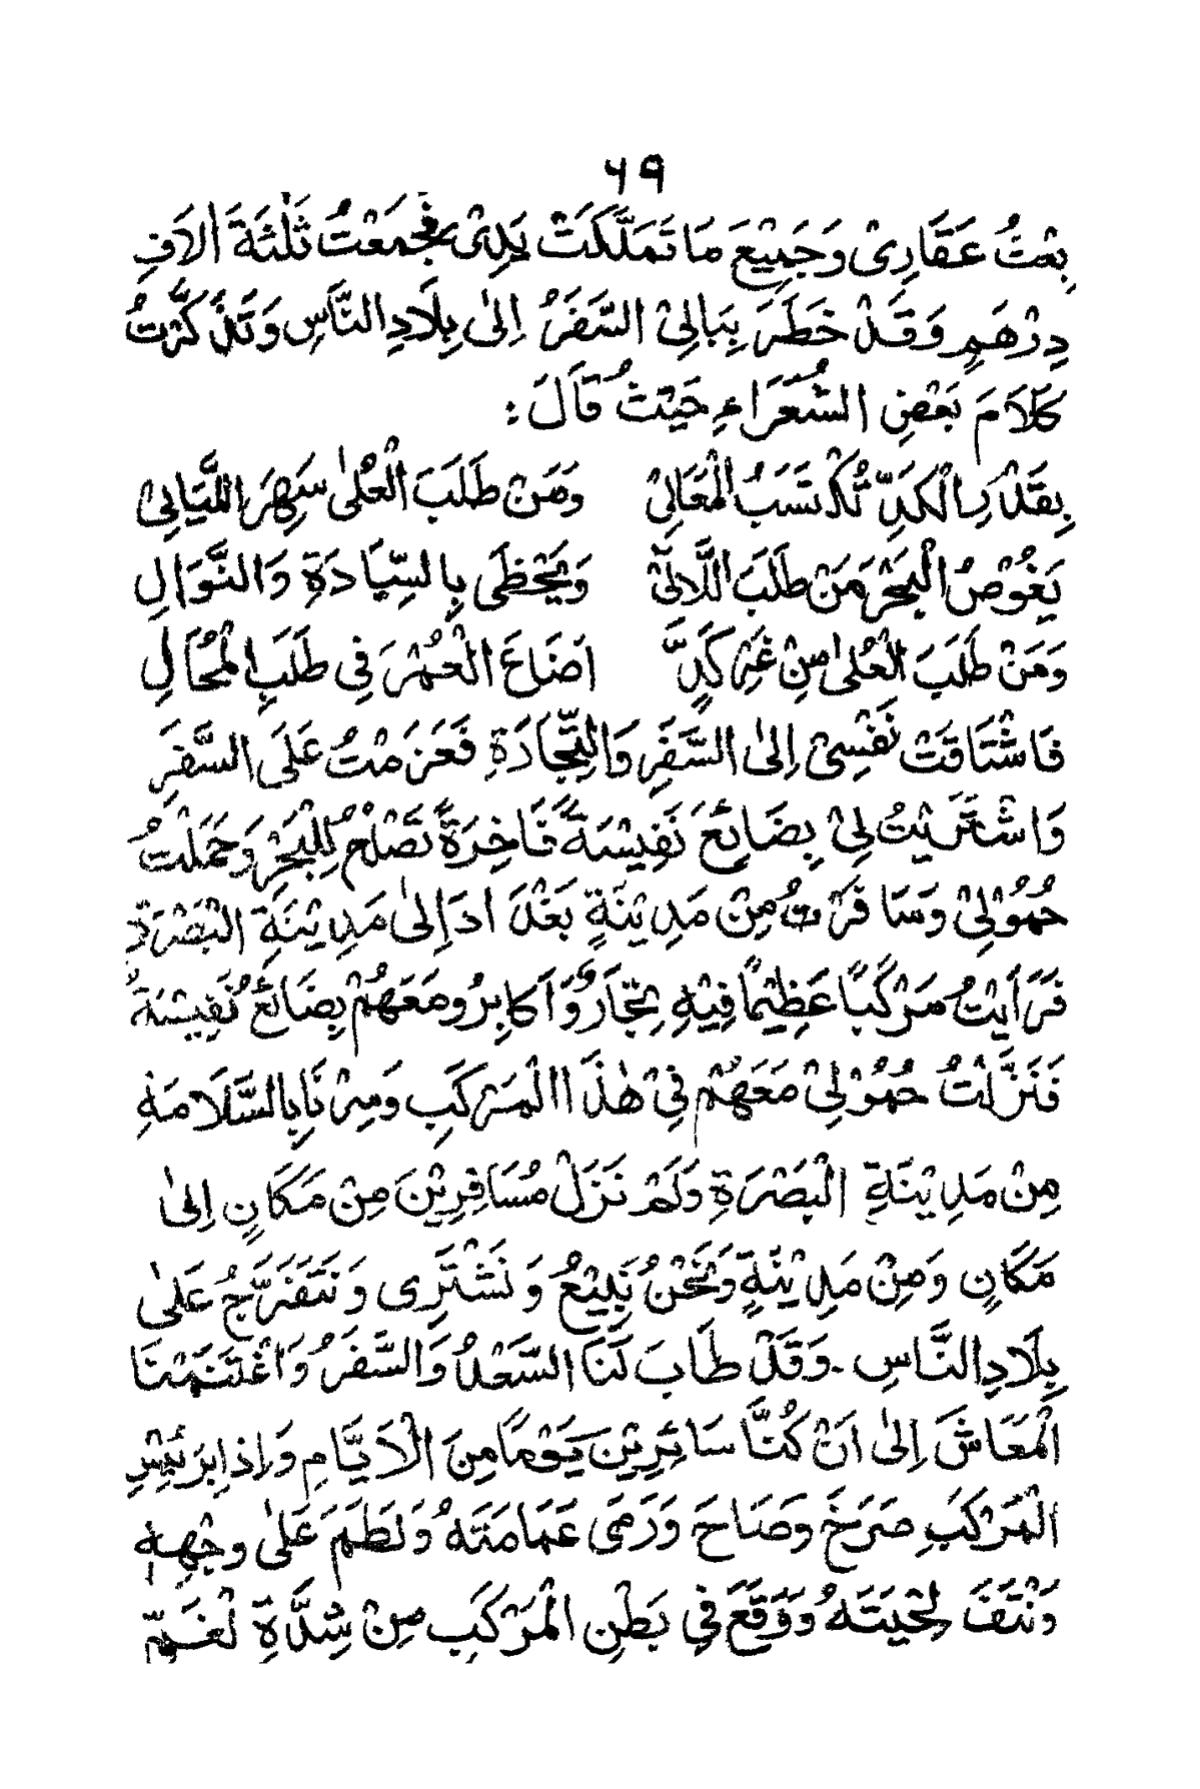 ٦٩
بِعْتُ عَقَارِیْ وَجَمِیْعَ مَا تَمَلَّکَتْ یَدِیْ فَجَمَعْتُ ثَلٰثَةَ اٰلَافِ
دِرْهَمٍ وَقَدْ خَطَرَ بِبَالِیْ السَّفَرُ اِلٰی بِلَادِ النَّاسِ وَتَذَکَّرْتُ
کَلَامَ بَعْضِ الشُّعَرَاءِ حَیْثُ قَالَ :
بِقَدْرِ الْکَدِّ تُکْتَسَبُ الْمَعَالِیْ وَمَنْ طَلَبَ الْعُلٰی سَهِرَ اللَّیَالِیْ
یَغُوْصُ الْبَحْرَ مَنْ طَلَبَ اللَّاٰلِیْ وَیَحْظٰی بِالسِّیَادَةِ وَالنَّوَالِ
وَمَنْ طَلَبَ الْعُلٰی مِنْ غَیْرِ کَدٍّ اَضَاعَ الْعُمْرَ فِی طَلَبِ الْمُحَالِ
فَاشْتَاقَتْ نَفْسِیْ اِلٰی السَّفَرِ وَالتِّجَارَةِ فَعَزَمْتُ عَلَی السَّفَرِ
وَاشْتَرَیْتُ لِیْ بِضَائِعَ نَفِیْسَةً فَاخِرَةً تَصْلَحُ لِلْبَحْرِ وَحَمَلْتُ
حُمُوْلِیْ وَسَافَرْتُ مِنْ مَدِیْنَةِ بَغْدَادَ اِلٰی مَدِیْنَةِ الْبَصْرَةِ
فَرَاَیْتُ مَرْکَبًا عَظِیْمًا فِیْهِ تُجَّارٌ وَّاَکَابِرُ وَمَعَهُمْ بِضَائِعُ نَفِیْسَةٌ
فَنَزَلْتُ حُمُوْلِیْ مَعَهُمْ فِیْ هٰذَا الْمَرْکَبِ وَسِرْنَا بِالسَّلَامَةِ
مِنْ مَدِیْنَةِ الْبَصْرَةِ وَلَمْ نَزَلْ مُسَافِرِیْنَ مِنْ مَکَانٍ اِلٰی
مَکَانٍ وَمِنْ مَدِیْنَةٍ وَنَحْنُ نَبِیْعُ وَنَشْتَرِی وَنَتَفَرَّجُ عَلٰی
بِلَادِ النَّاسِ ۔ وَقَدْ طَابَ لَنَا السَّعْدُ وَالسَّفَرُ وَاغْتَنَمْنَا
الْمَعَاشَ اِلٰی اَنْ کُنَّا سَائِرِیْنَ یَوْمًا مِنَ الْاَیَّامِ وَاِذَا بِرَئِیْسِ
الْمَرْکَبِ صَرَخَ وَصَاحَ وَرَمَی عَمَامَتَهُ وَلَطَمَ عَلٰی وَجْهِهٖ
وَنَتَفَ لِحْیَتَهُ وَوَقَعَ فِی بَطْنِ الْمَرْکَبِ مِنْ شِدَّةِ لْغَمِّ